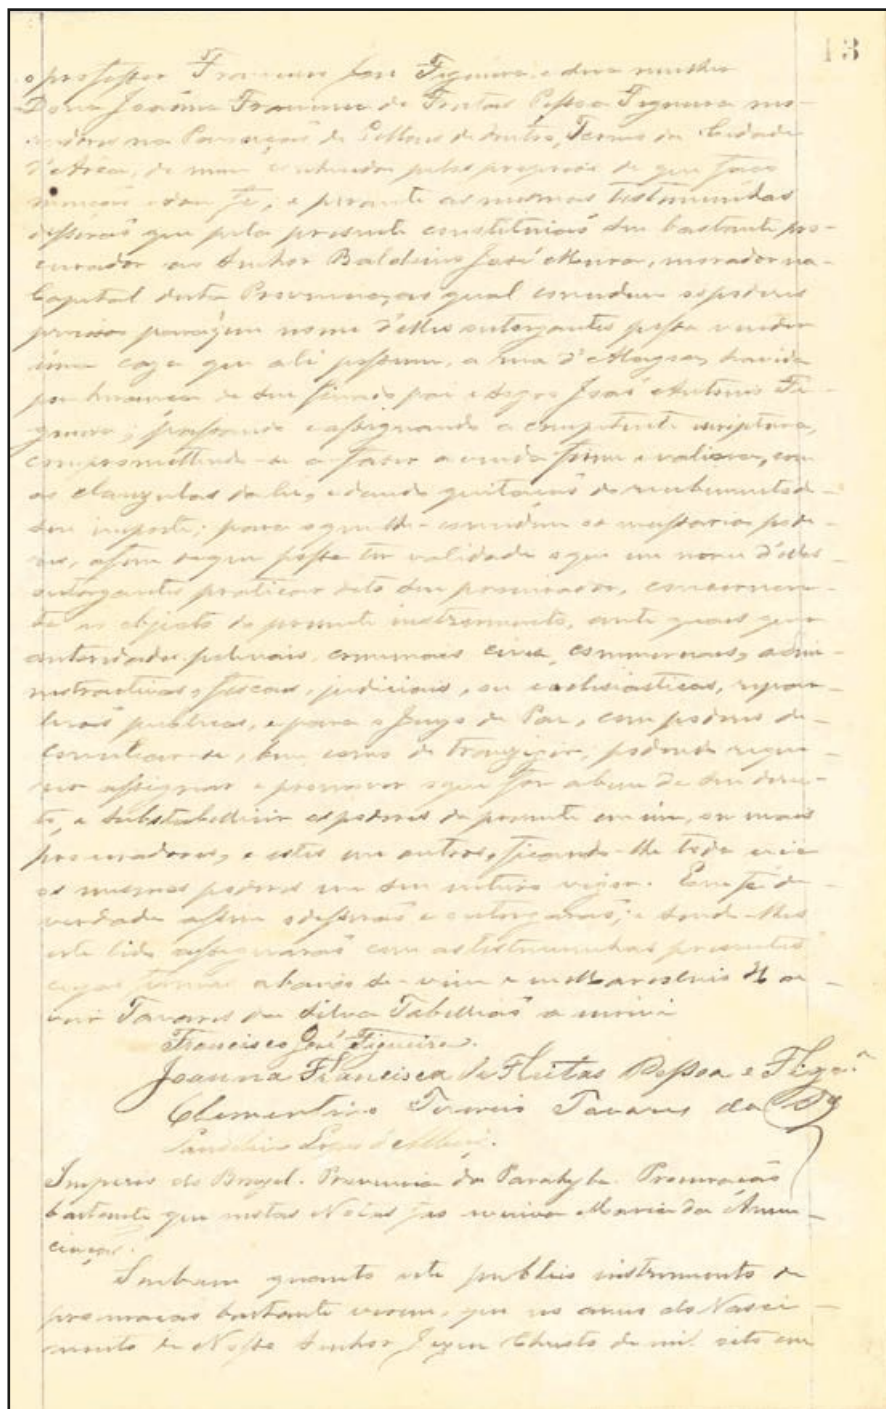 13
o professor Francisco José Figueira e sua mulher
Dona Joanna Francisca de Freitas Pessoa Figueira mo-
radores na Povoação de Pillões de dentro, Termo da Cidade
d'Areia, de mim conhecidos pelos proprios de que faço
menção e dou fé, e perante as mesmas testemunhas
disserão que pela presente constituião seu bastante pro-
curador ao Senhor Balduino José Meira, morador na
Capital desta Provincia, ao qual concedem os poderes
precisos para em nome d'elles outorgantes possa vender
uma caza que ali possuem, a rua d' havida
por herança de seu finado pai e sogro José Antonio Fi-
gueira; passando e assignando a competente escriptura,
compromettendo-se a fazer a venda firme e valiosa, com
as clauzulas da lei, e dando quitação do recebimento de
seu importe; para o que lhe concedem os necessarios pode-
res, afim de que possa ter validade o que em nome d'elles
outorgantes praticar dito seu procurador, concernen-
te ao objecto do presente instrumento, ante quaes quer
autoridades criminaes, civis, commerciaes, admi-
nistractivas, fiscaes, judiciais, ou ecclesiasticas, repar-
tições publicas, e para o Juizo de Paz, com poderes de
conciliar-se, bem como de tranzigir; podendo reque-
rer assignar e promover o que for a bem de seu direi-
to, e substabellecer os poderes da presente em um, ou mais
procuradores, e estes em outros, ficando-lhe toda via
os mesmos poderes em seu inteiro vigor. Em fé de
verdade assim o disserão e outorgarão; e sendo-lhes
este lido assignarão com as testemunhas presentes
cujas firmas abaixo de-
Tavares da Silva Tabellião a escrivi
Francisco José Figueira.
Joanna Francisca de Freitas Pessoa e Figra
Clementino Tavares da Sa

Imperio do Brazil. Provincia da Parahyba. Procuração
bastante que nestas Notas fas Maria da Anun-
ciação.
Saibam quanto este publico instrumento de
procuração bastante virem, que no anno do Nasci-
mento de Nosso Senhor Jezus Christo de mil oito cen